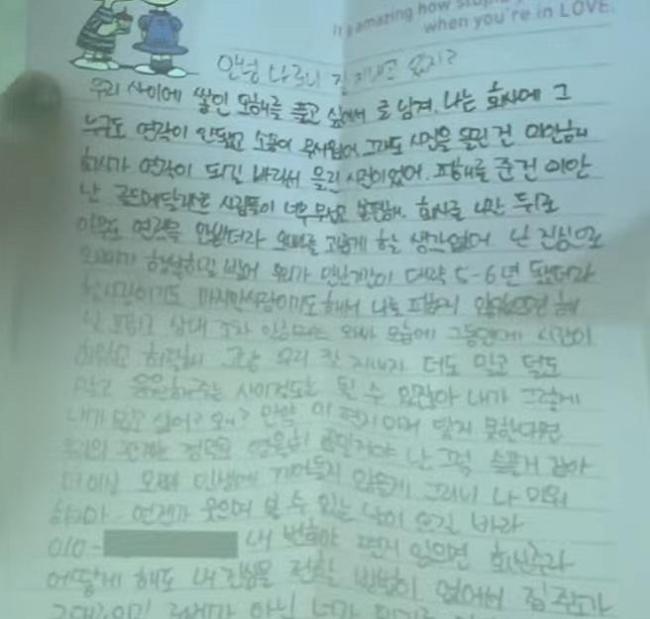 It's amazing how stupid
when you're in LOVE.
안녕 다르니 잘 지내고 있지?
우리 사이에 쌓인 오해를 풀고 싶어서 글 남겨. 나는 회사에 그
누구도 연락이 안됐고 소송이 무서웠어. 그래도 사진을 올린 건 미안해
회사가 연락이 되길 바라서 올린 사진이었어. 피해를 준 건 미안
난 골드메달리스트 사람들이 너무 무섭고 불편해. 회사를 나간 뒤로
아무도 연락을 안받더라 오빠를 괴롭게 할 생각 없어 난 진심으로
오빠가 행복하길 빌어 우리가 만난기간이 대략 5-6년 됐더라
첫사랑이기도 마지막사랑이기도 해서 나를 피하지 않았으면 해
허탈해 그냥 우리 잘 지내자 더도 말고 덜도
말고 응원해주는 사이정도는 될 수 있잖아 내가 그렇게
내가 밉고 싫어? 왜? 만약 이 편지에 답지 못한다면
우리의 관계는 정말로 영원히 끝일거야 난 그럼 슬플거 같아
더이상 오빠 인생에 끼어들지 않을게 그러니 나 미워
하지마. 언젠가 웃으며 볼 수 있는 날이 오길 바라
010- 내 번호야 편지 읽으면 회신주라
어떻게 해도 내 진심을 전할 방법이 없어서 집 주소가